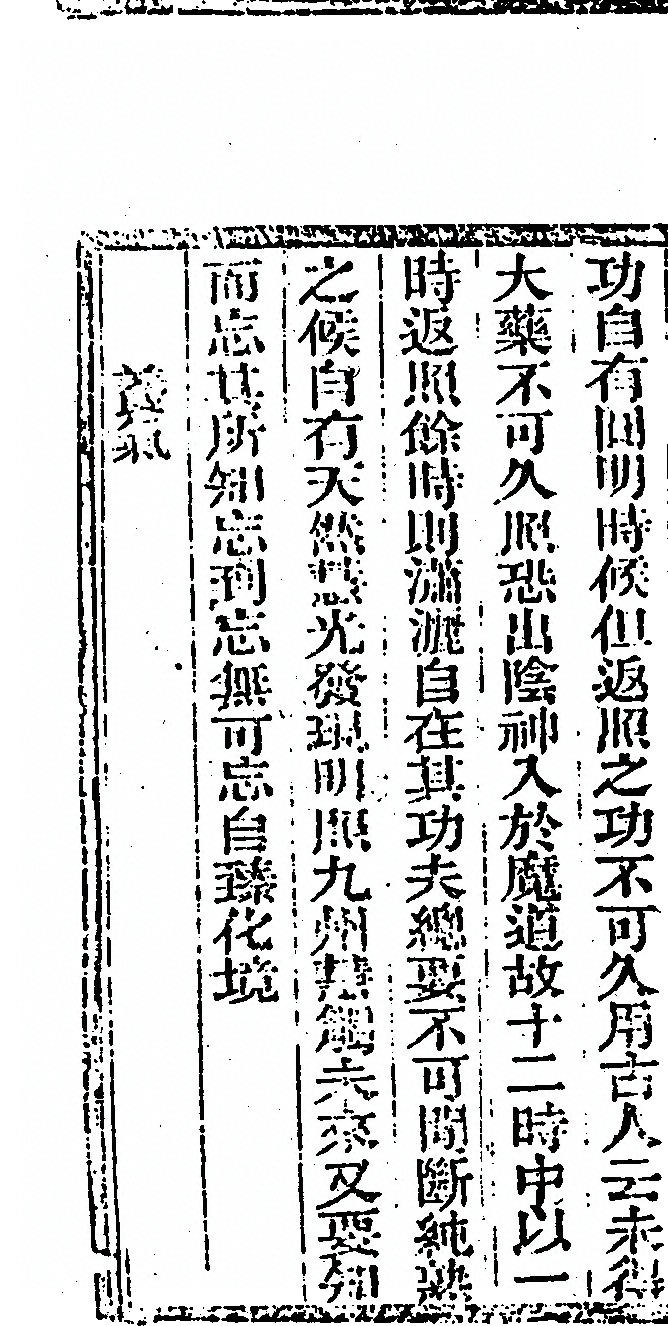 功自有圓明時候但返照之功不可久用古人云未得
大藥不可久照恐出陰神入於魔道故十二時中以一
時返照餘時則瀟灑自在其功夫總要不可間斷純熟
之候自有天然慧光發現明照九州慧觸未來又要知
而忘其所知忘到忘無可忘自臻化境
養真氣